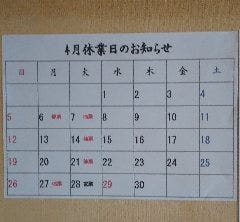 4月休業日のお知らせ
日 月 火 水 木 金 土
1 2 3 4
5 6 7 8 9 10 11
12 13 14 15 16 17 18
19 20 21 22 23 24 25
26 27 28 29 30